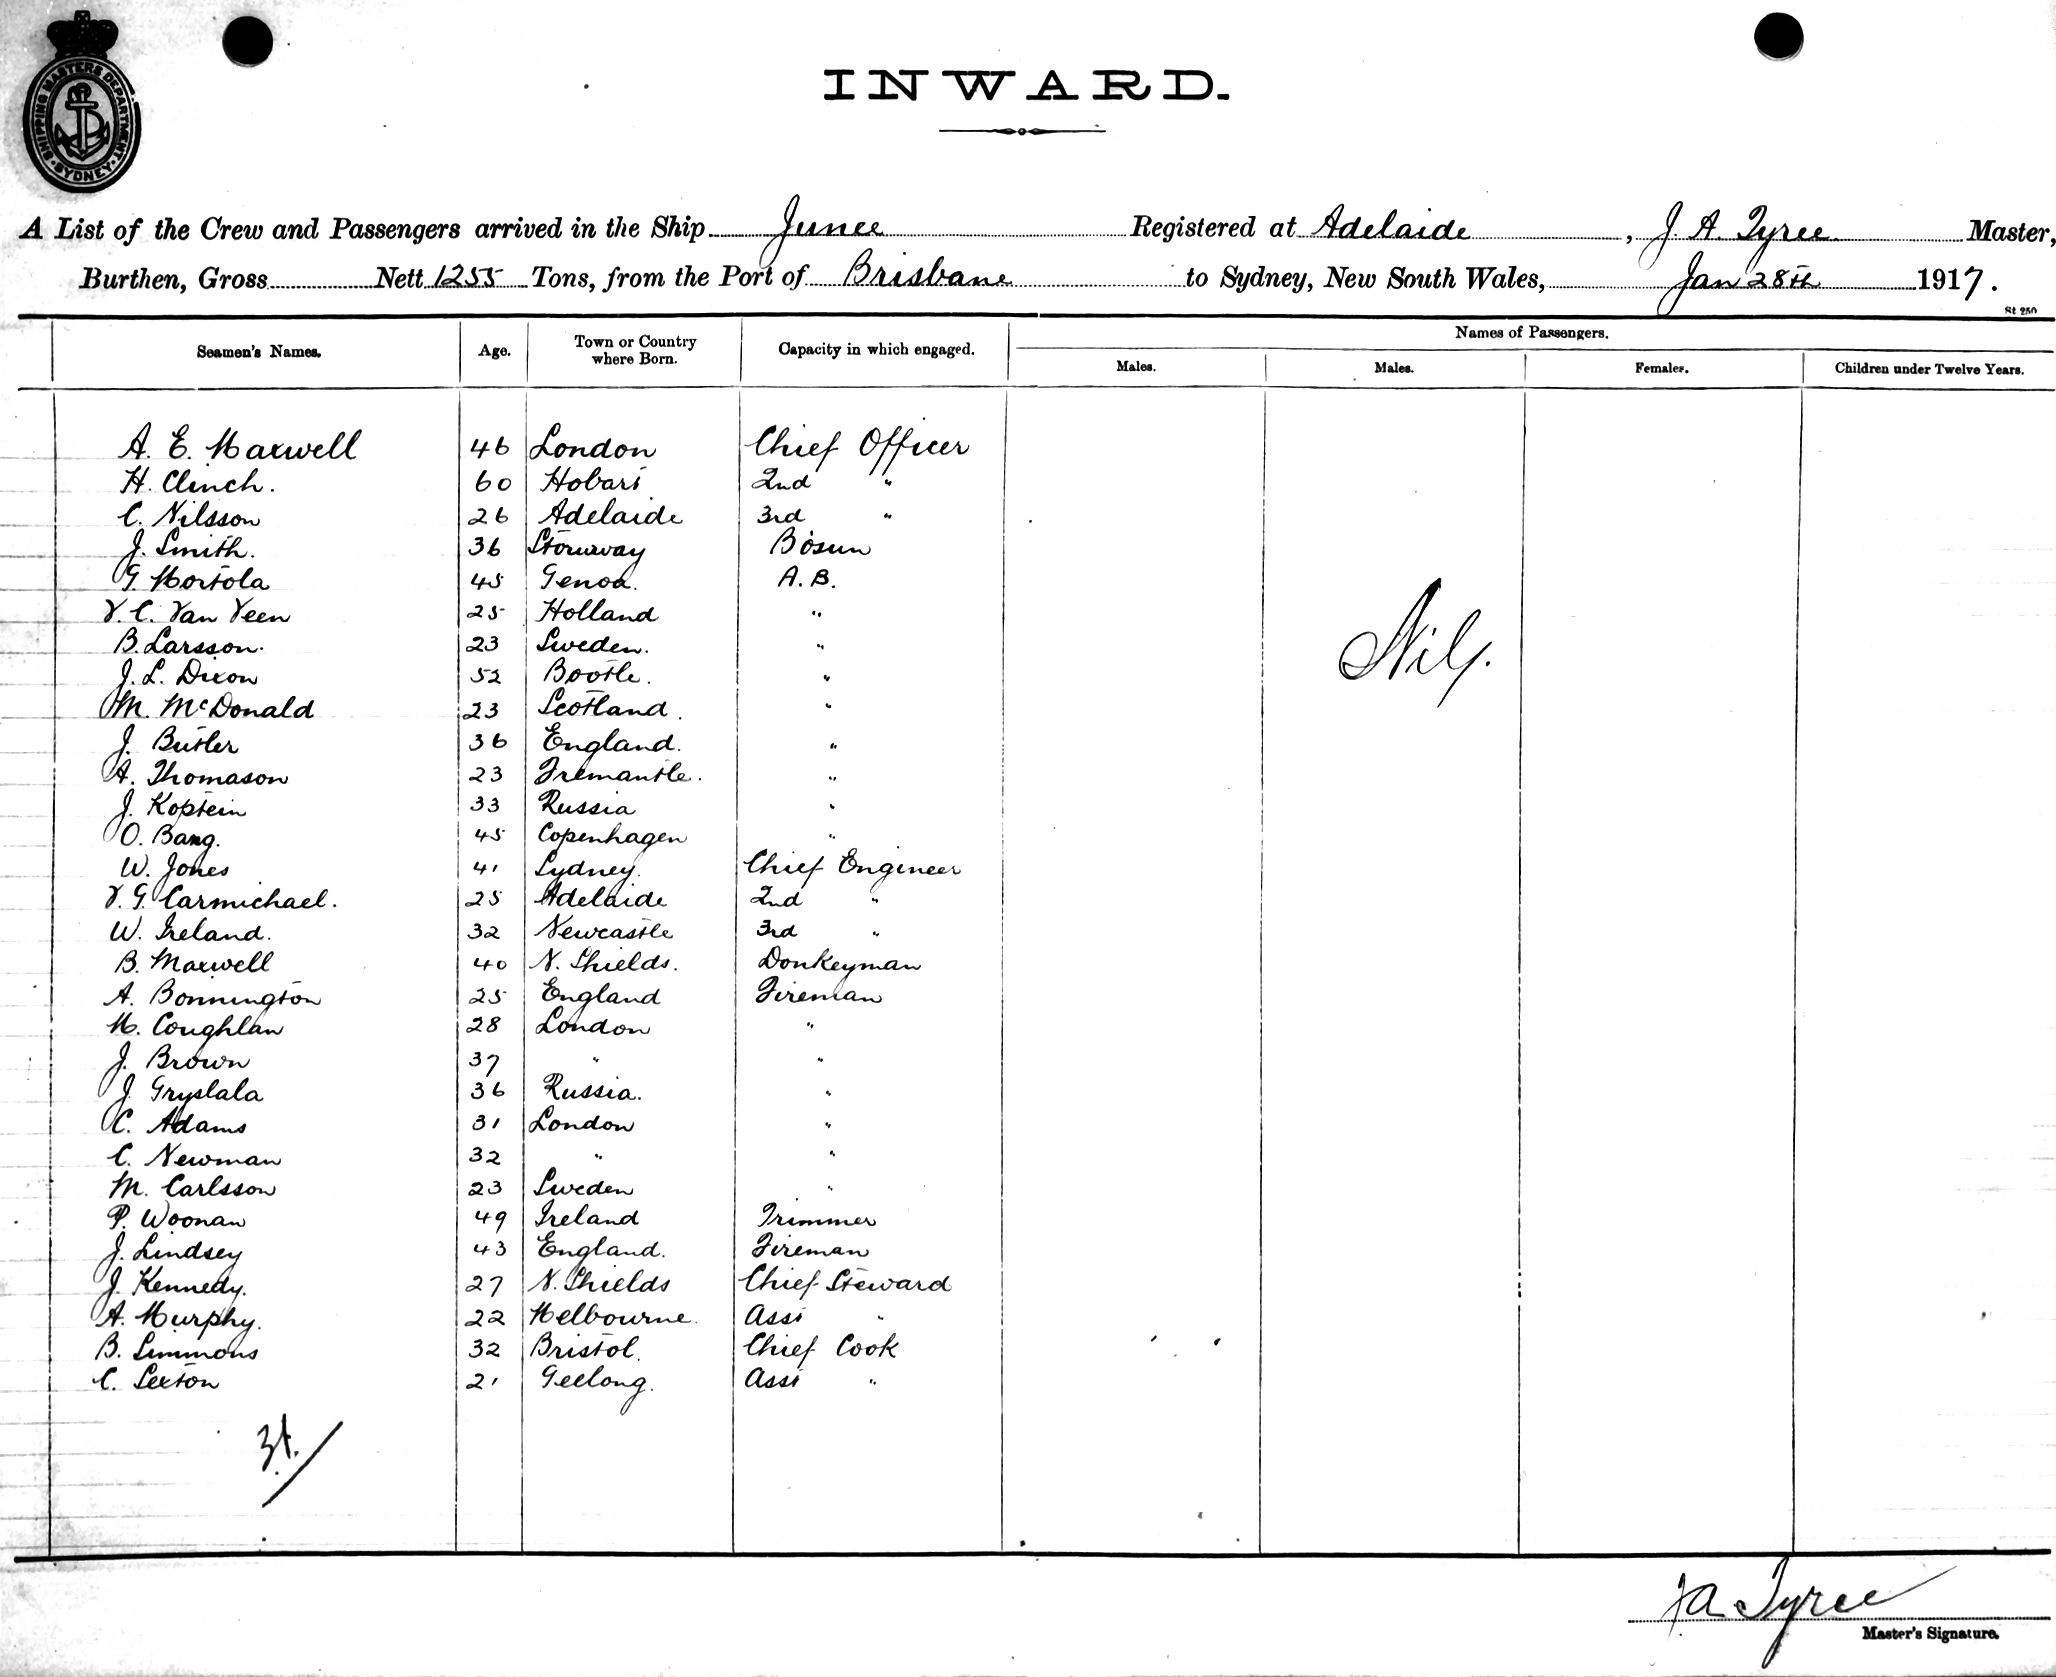 SHIPPING MASTERS DEPARTMENT. SYDNEY
INWARD.
A List of the Crew and Passengers arrived in the Ship Junee Registered at Adelaide, J A. Tyree Master,
Burthen, Gross Nett 1255 Tons, from the Port of Brisbane to Sydney, New South Wales, Jan 28th 1917.
St 250
Names of Passengers.
Seamen's Names. Age. Town or Country where Born. Capacity in which engaged. Males. Males. Females. Children under Twelve Years.
A. E. Maxwell 46 London Chief Officer
H. Clinch. 60 Hobart 2nd "
C. Nilsson 26 Adelaide 3rd "
J. Smith. 36 Stornway Bosun
G. Mortola 45 Genoa. A.B.
V. C. Van Veen 25 Holland "
B. Larsson. 23 Sweden. "
J. L. Dixon 52 Bootle. "
M. McDonald 23 Scotland. "
J. Butler 36 England. "
A. Thomason 23 Fremantle. "
J. Koptein 33 Russia "
O. Bang. 45 Copenhagen "
W. Jones 41 Sydney. Chief Engineer
V. G. Carmichael. 25 Adelaide 2nd "
W. Ireland. 32 Newcastle 3rd "
B. Maxwell 40 N. Shields. Donkeyman
A. Bonnington 25 England Fireman
M. Coughlan 28 London "
J. Brown 37 " "
J. Gryslala 36 Russia. "
C. Adams 31 London "
C. Newman 32 " "
M. Carlsson 23 Sweden "
P. Woonan 49 Ireland Trimmer
J. Lindsey 43 England. Fireman
J. Kennedy. 27 N. Shields Chief Steward
A. Murphy. 22 Melbourne. Asst "
B. Simmons 32 Bristol. Chief Cook
C. Sexton 21 Geelong. Asst "
Nil.
31.
J A Tyree
Master's Signature.